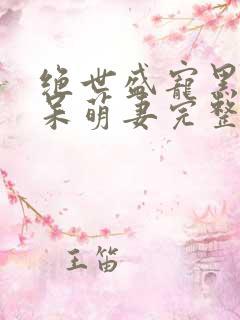 绝世盛宠黑
呆萌妻完整
王笛